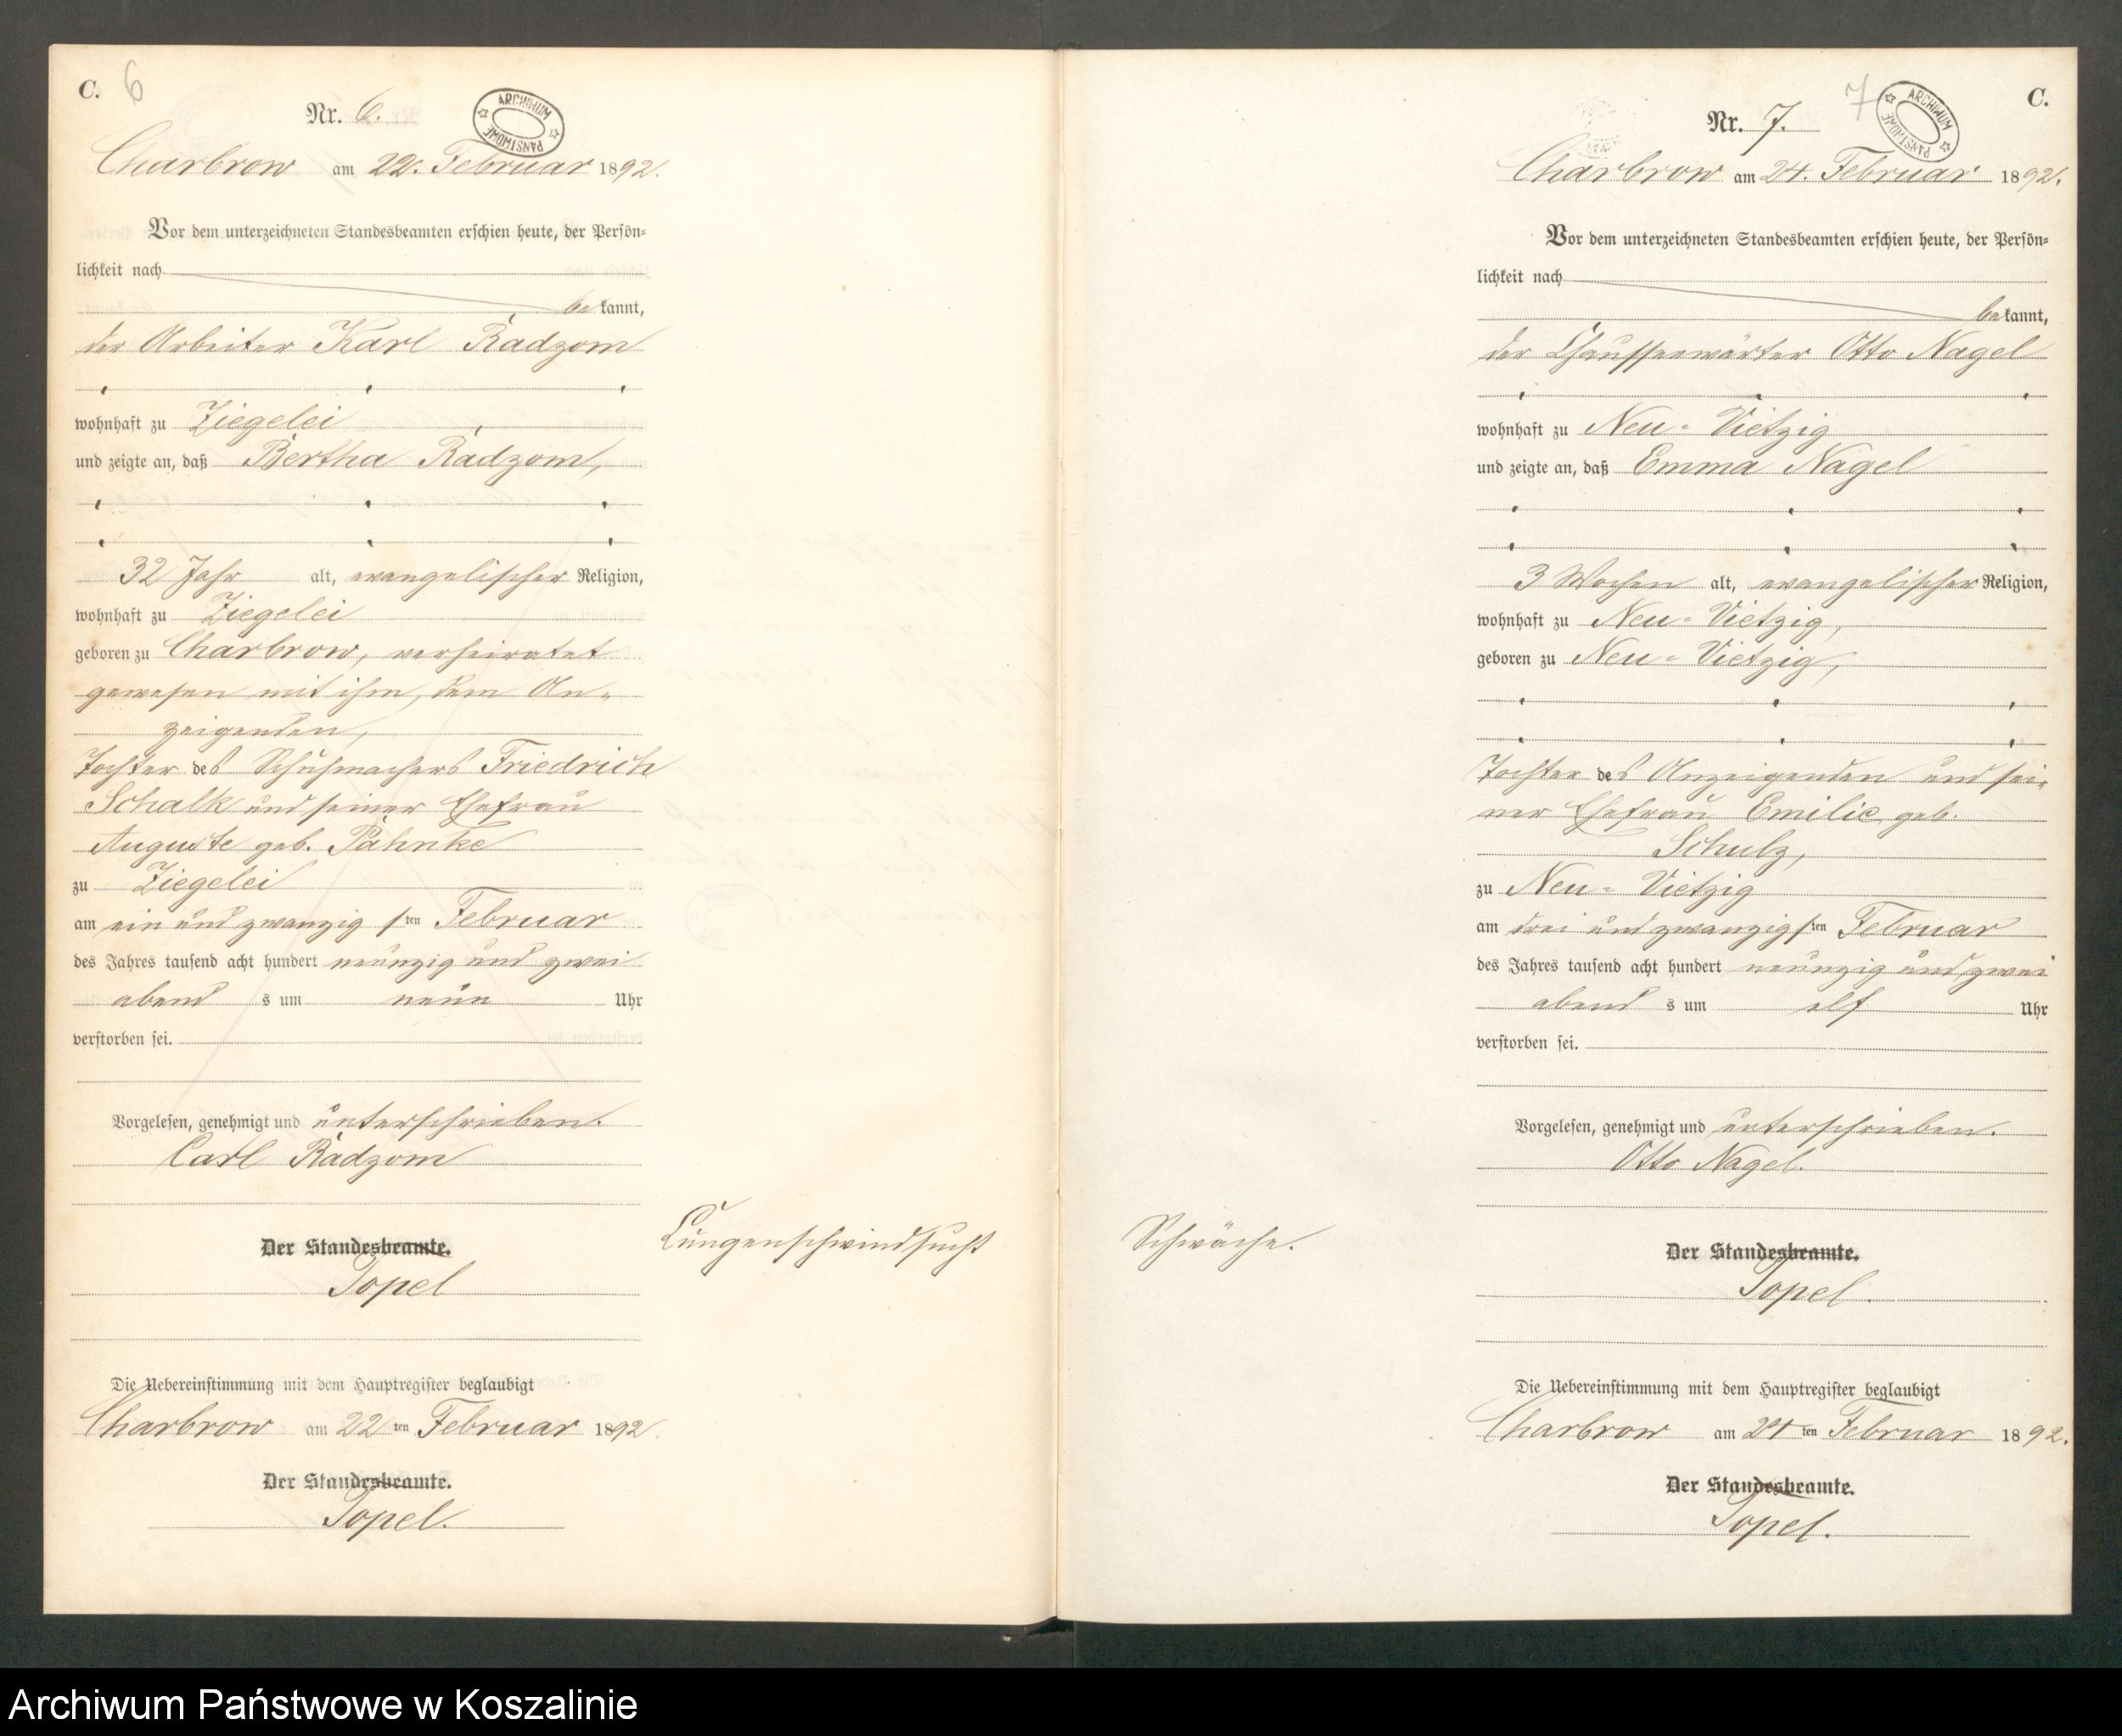 C. 6
Nr. 6.
ARCHIWUM PAŃSTWOWE
Charbrow am 22. Februar 1892.
Vor dem unterzeichneten Standesbeamten erschien heute, der Persön-
lichkeit nach
bekannt,
der Arbeiter Karl Radzom
wohnhaft zu Ziegelei
und zeigte an, daß Bertha Radzom,
32 Jahr alt, evangelischer Religion,
wohnhaft zu Ziegelei
geboren zu Charbrow, verheiratet
gewesen mit ihm, dem An-
zeigenden,
Tochter des Schuhmachers Friedrich
Schalk und seiner Ehefrau
Auguste geb. Pahnke
zu Ziegelei
am ein und zwanzigsten Februar
des Jahres tausend acht hundert neunzig und zwei
abends um neun Uhr
verstorben sei.
Vorgelesen, genehmigt und unterschrieben.
Carl Radzom
Der Standesbeamte.
Topel
Lungenschwindsucht
Die Uebereinstimmung mit dem Hauptregister beglaubigt
Charbrow am 22ten Februar 1892.
Der Standesbeamte.
Topel.
7 C.
Nr. 7.
ARCHIWUM PAŃSTWOWE
Charbrow am 24. Februar 1892.
Vor dem unterzeichneten Standesbeamten erschien heute, der Persön-
lichkeit nach
bekannt,
der Chausseewärter Otto Nagel
wohnhaft zu Neu-Vietzig
und zeigte an, daß Emma Nagel
3 Wochen alt, evangelischer Religion,
wohnhaft zu Neu-Vietzig,
geboren zu Neu-Vietzig,
Tochter des Anzeigenden und sei-
ner Ehefrau Emilie geb.
Schulz,
zu Neu-Vietzig
am drei und zwanzigsten Februar
des Jahres tausend acht hundert neunzig und zwei
abends um elf Uhr
verstorben sei.
Vorgelesen, genehmigt und unterschrieben.
Otto Nagel.
Schwäche.
Der Standesbeamte.
Topel.
Die Uebereinstimmung mit dem Hauptregister beglaubigt
Charbrow am 24ten Februar 1892.
Der Standesbeamte.
Topel.
Archiwum Państwowe w Koszalinie